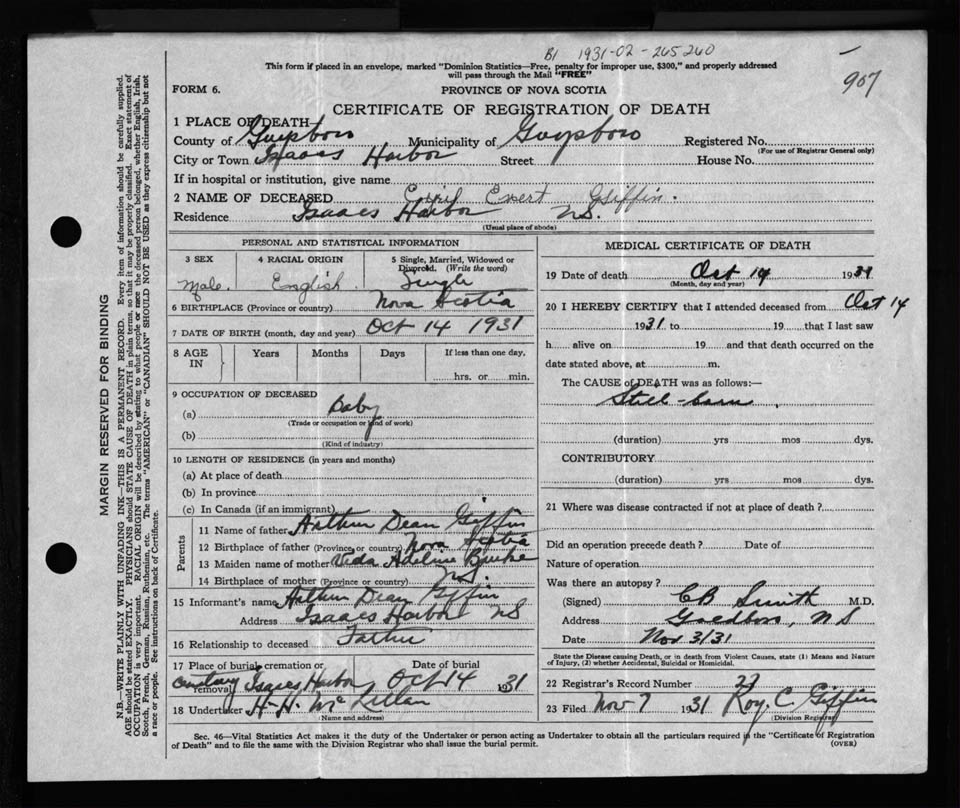 B1 1931-02-265260
907
This form if placed in an envelope, marked "Dominion Statistics—Free, penalty for improper use, $300," and properly addressed
will pass through the Mail "FREE"
FORM 6.
PROVINCE OF NOVA SCOTIA
CERTIFICATE OF REGISTRATION OF DEATH
MARGIN RESERVED FOR BINDING
N.B.—WRITE PLAINLY WITH UNFADING INK—THIS IS A PERMANENT RECORD. Every item of information should be carefully supplied.
AGE should be stated EXACTLY. PHYSICIANS should STATE CAUSE OF DEATH in plain terms, so that it may be properly classified. Exact statement of
OCCUPATION is very important. RACIAL ORIGIN will be described by stating to what people or race the deceased person belonged, whether English, Irish,
Scotch, French, German, Russian, Ruthenian, etc. The terms "AMERICAN" or "CANADIAN" SHOULD NOT BE USED as they express citizenship but not
a race or people. See instructions on back of Certificate.
1 PLACE OF DEATH
County of Guysboro Municipality of Guysboro Registered No.
(For use of Registrar General only)
City or Town Isaacs Harbor Street House No.
If in hospital or institution, give name
2 NAME OF DECEASED Evert Giffin.
Residence Isaacs Harbor NS.
(Usual place of abode)
PERSONAL AND STATISTICAL INFORMATION
3 SEX
Male.
4 RACIAL ORIGIN
English.
5 Single, Married, Widowed or
Divorced. (Write the word)
Single
6 BIRTHPLACE (Province or country) Nova Scotia
7 DATE OF BIRTH (month, day and year) Oct 14 1931
8 AGE IN Years Months Days If less than one day,
hrs. or min.
9 OCCUPATION OF DECEASED
(a) Baby
(Trade or occupation or kind of work)
(b)
(Kind of industry)
10 LENGTH OF RESIDENCE (in years and months)
(a) At place of death
(b) In province
(c) In Canada (if an immigrant)
Parents
11 Name of father Arthur Dean Giffin
12 Birthplace of father (Province or country) Nova Scotia
13 Maiden name of mother Veda Adeline Burke
14 Birthplace of mother (Province or country) N.S.
15 Informant's name Arthur Dean Giffin
Address Isaacs Harbor NS
16 Relationship to deceased Father
17 Place of burial, cremation or removal Cemetery Isaacs Harbor
Date of burial
Oct 14 1931
18 Undertaker H. H. McLellan
(Name and address)
MEDICAL CERTIFICATE OF DEATH
19 Date of death Oct 14 1931
(Month, day and year)
20 I HEREBY CERTIFY that I attended deceased from Oct 14
1931 to 19 that I last saw
h alive on 19 and that death occurred on the
date stated above, at m.
The CAUSE of DEATH was as follows:—
Still-born
(duration) yrs mos dys.
CONTRIBUTORY
(duration) yrs mos dys.
21 Where was disease contracted if not at place of death?
Did an operation precede death? Date of
Nature of operation
Was there an autopsy?
(Signed) CB Smith M.D.
Address Goldboro, NS
Date Nov 3/31
State the Disease causing Death, or in death from Violent Causes, state (1) Means and Nature
of Injury, (2) whether Accidental, Suicidal or Homicidal.
22 Registrar's Record Number
23 Filed Nov 7 1931 Roy. C. Giffin
(Division Registrar)
Sec. 46—Vital Statistics Act makes it the duty of the Undertaker or person acting as Undertaker to obtain all the particulars required in the "Certificate of Registration
of Death" and to file the same with the Division Registrar who shall issue the burial permit.
(OVER)